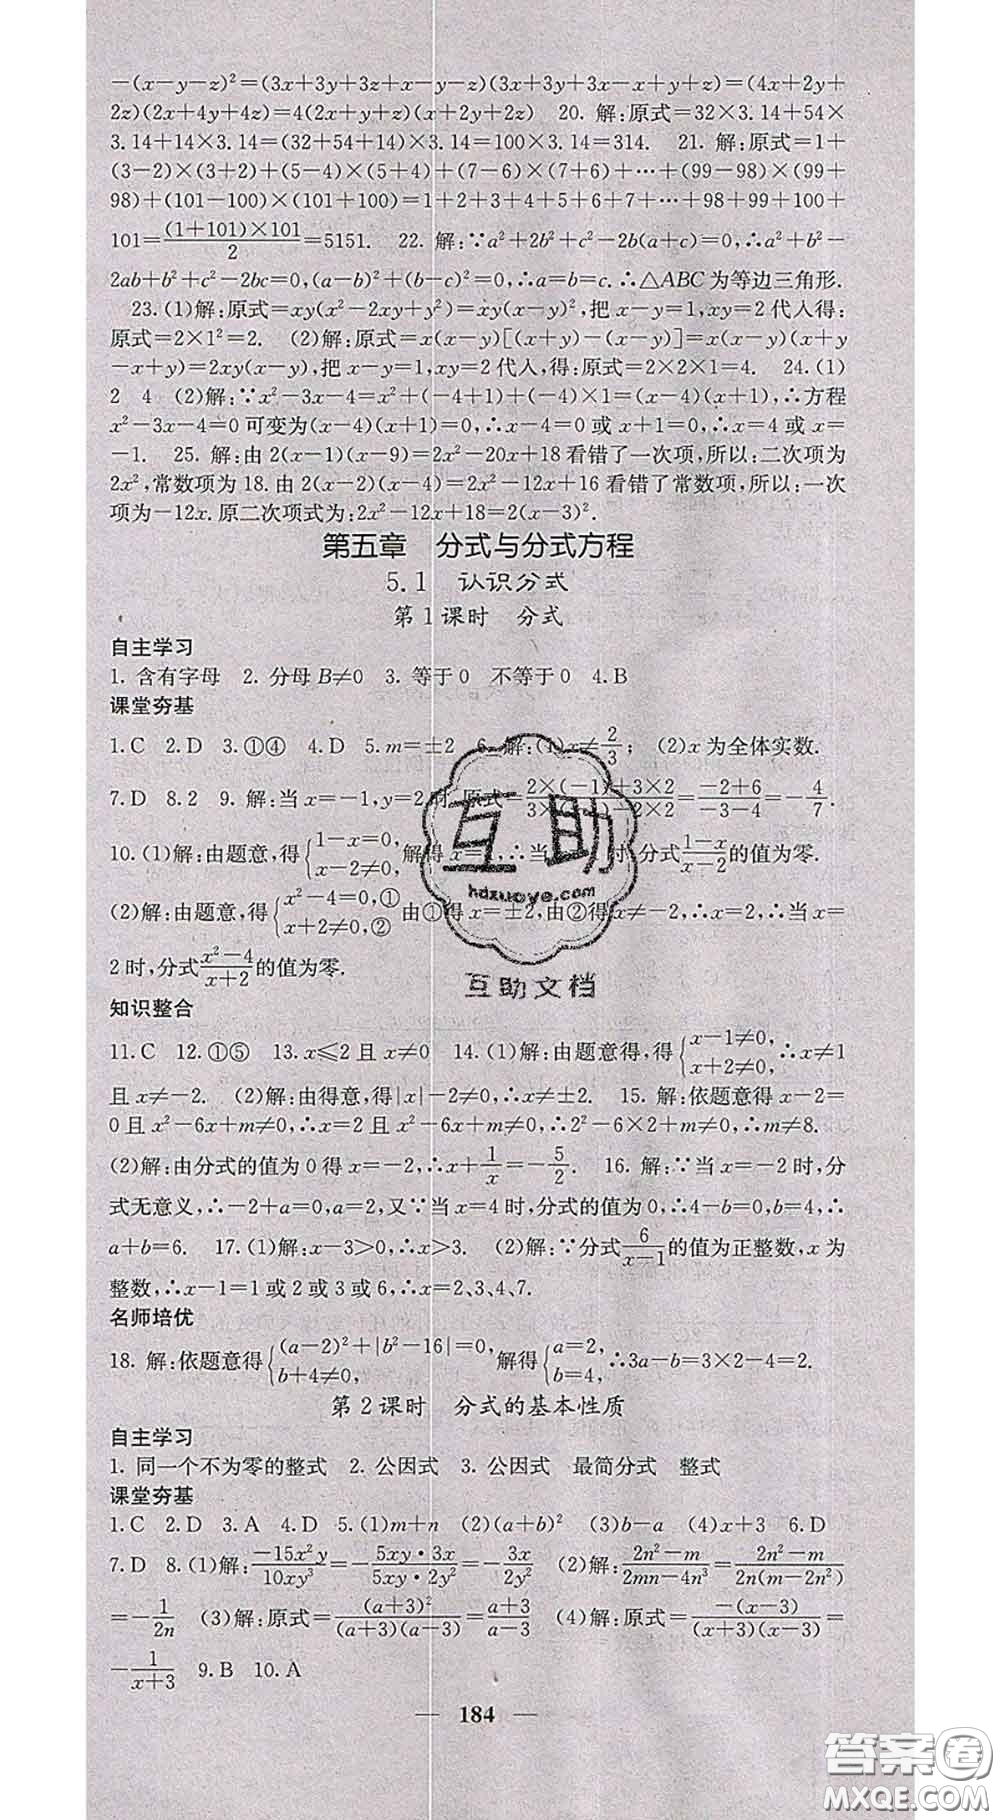 －(x－y－z)²＝(3x＋3y＋3z＋x－y－z)(3x＋3y＋3x－x＋y＋z)＝(4x＋2y＋
2z)(2x＋4y＋4z)＝4(2x＋y＋z)(x＋2y＋2z)　20. 解:原式＝32×3.14＋54×
3.14＋14×3.14＝(32＋54＋14)×3.14＝100×3.14＝314.　21. 解:原式＝1＋
(3－2)×(3＋2)＋(5－4)×(5＋4)＋(7－6)×(7＋6)＋…＋(99－98)×(99＋
98)＋(101－100)×(101＋100)＝1＋2＋3＋4＋5＋6＋7＋…＋98＋99＋100＋
101＝(1＋101)×101/2＝5151.　22. 解:∵a²＋2b²＋c²－2b(a＋c)＝0,∴a²＋b²－
2ab＋b²＋c²－2bc＝0,(a－b)²＋(b－c)²＝0,∴a＝b＝c.∴△ABC为等边三角形.
23.(1)解:原式＝xy(x²－2xy＋y²)＝xy(x－y)²,把 x－y＝1,xy＝2代入得:
原式＝2×1²＝2.　(2)解:原式＝x(x－y)[(x＋y)－(x－y)]＝x(x－y)(x＋y
－x＋y)＝2xy(x－y),把 x－y＝1,xy＝2 代入,得:原式＝2×2×1＝4.　24.(1)
2　4　(2)解:∵x²－3x－4＝x²＋(－4＋1)＋(－4)×1＝(x－4)(x＋1),∴方程
x²－3x－4＝0 可变为(x－4)(x＋1)＝0,∴x－4＝0 或 x＋1＝0,∴x＝4 或 x＝
－1.　25. 解:由 2(x－1)(x－9)＝2x²－20x＋18看错了一次项,所以:二次项为
2x²,常数项为18.由 2(x－2)(x－4)＝2x²－12x＋16看错了常数项,所以:一次
项为－12x.原二次项式为:2x²－12x＋18＝2(x－3)².
第五章　分式与分式方程
5.1　认识分式
第1课时　分式
自主学习
1. 含有字母　2. 分母 B≠0　3. 等于0　不等于0　4.B
课堂夯基
1.C　2.D　3.①④　4.D　5.m＝±2　6. 解:(1)x≠2/3;　(2)x为全体实数.
7.D　8.2　9. 解:当 x＝－1,y＝2时,原式＝2×(－1)＋3×2/3×(－1)－2×2＝－2＋6/－3－4＝－4/7.
10.(1)解:由题意,得{1－x＝0,x－2≠0,解得x＝1,∴当 时,分式1－x/x－2的值为零.
(2)解:由题意,得{x²－4＝0,①x＋2≠0,②由①得 x＝±2,由②得x≠－2,∴x＝2,∴当 x＝
2时,分式x²－4/x＋2的值为零.
知识整合
11.C　12.①⑤　13.x≤2且 x≠0　14.(1)解:由题意得,得{x－1≠0,x＋2≠0,∴x≠1
且 x≠－2.　(2)解:由得意,得|x|－2≠0,∴x≠±2.　15. 解:依题意得 x－2＝
0且 x²－6x＋m≠0,∴x＝2且 x²－6x＋m≠0,∴2²－6×2＋m≠0,∴m≠8.
(2)解:由分式的值为0得 x＝－2,∴x＋1/x＝－5/2.　16. 解:∵当 x＝－2时,分
式无意义,∴－2＋a＝0,a＝2,又∵当 x＝4 时,分式的值为0,∴4－b＝0,b＝4,∴
a＋b＝6.　17.(1)解:x－3＞0,∴x＞3.　(2)解:∵分式6/x－1的值为正整数,x 为
整数,∴x－1＝1或2或3或6,∴x＝2、3、4、7.
名师培优
18. 解:依题意得{(a－2)²＋|b²－16|＝0,b＋4≠0,　解得{a＝2,b＝4,∴3a－b＝3×2－4＝2.
第2课时　分式的基本性质
自主学习
1. 同一个不为零的整式　2. 公因式　3. 公因式　最简分式　整式
课堂夯基
1.C　2.D　3.A　4.D　5.(1)m＋n　(2)(a＋b)²　(3)b－a　(4)x＋3　6.D
7.D　8.(1)解:－15x²y/10xy³＝－5xy·3x/5xy·2y²＝－3x/2y²　(2)解:2n²－m/2mn－4n³＝2n²－m/2n(m－2n²)
＝－1/2n　(3)解:原式＝(a＋3)²/(a＋3)(a－3)＝a＋3/a－3　(4)解:原式＝－(x－3)/(x＋3)(x－3)＝
－1/x＋3　9.B　10.A
— 184 —
互助
hdzuoye.com
互助文档
答案圈
MXQE.COM